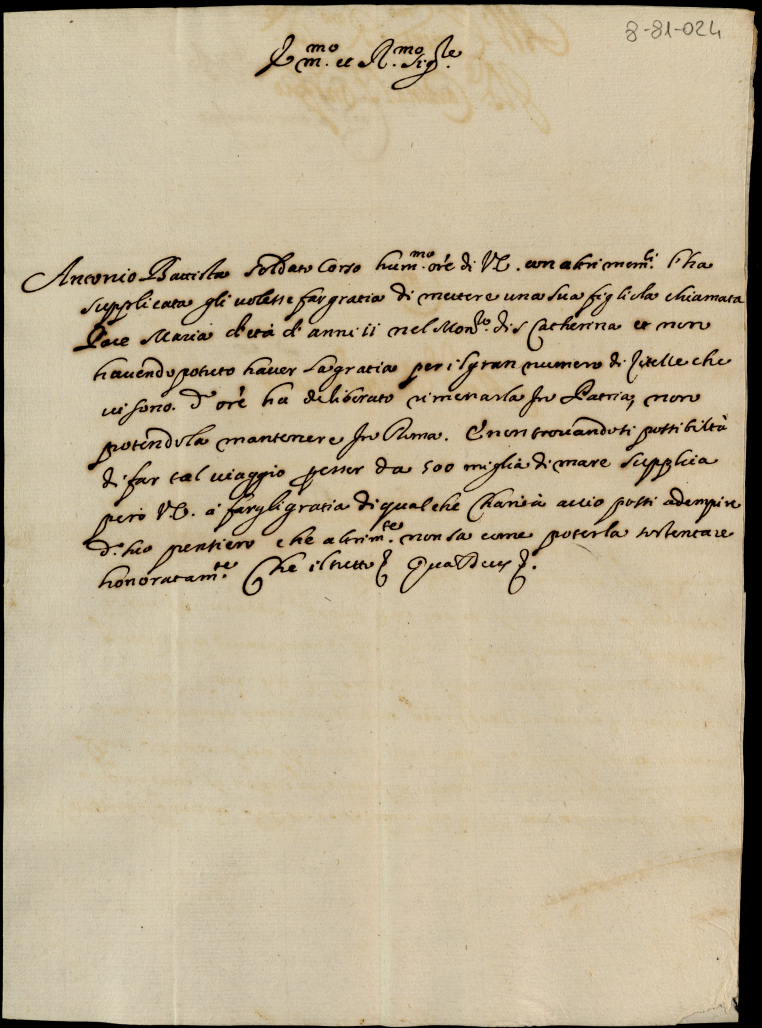 8-81-024
Em.mo et R.mo Sig.re
Antonio Battista soldato Corso hum.mo ore di VS. con altri mem.li l'ha
supplicata gli volesse far gratia di mettere una sua figliola chiamata
Maria d'età d'anni 11 nel Mon.rio di S Catherina et non
havendo potuto haver la gratia per il gran numero di Zitelle che
vi sono. d.o ore ha deliberato rimenarla in Patria, non
potendola mantenere in Roma. E non trovandosi possibiltà
di far tal viaggio p esser da 500 miglia di mare supplica
però VS. à fargli gratia di qualche Charità acciò possi adempire
d.o suo pensiero che altrim.te non sa come poterla sostentare
honoratam.te Che il tutto &c Quas Deus &c.